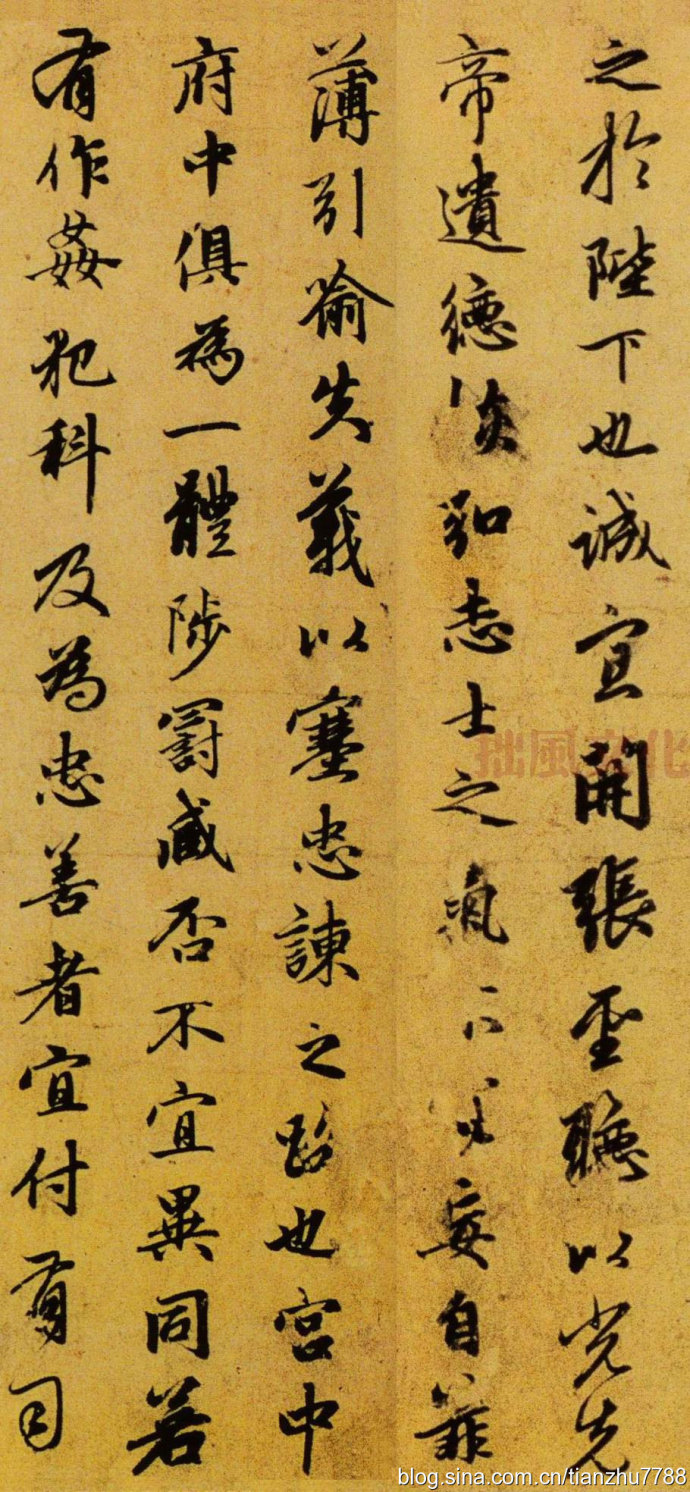 之於陛下也誠宜開張聖聽以光先
帝遺德恢弘志士之氣不妄自菲
薄引喻失義以塞忠諫之路也宮中
府中俱為一體陟罰臧否不宜異同若
有作姦犯科及為忠善者宜付有司
拙風文化
blog.sina.com.cn/tianzhu7788